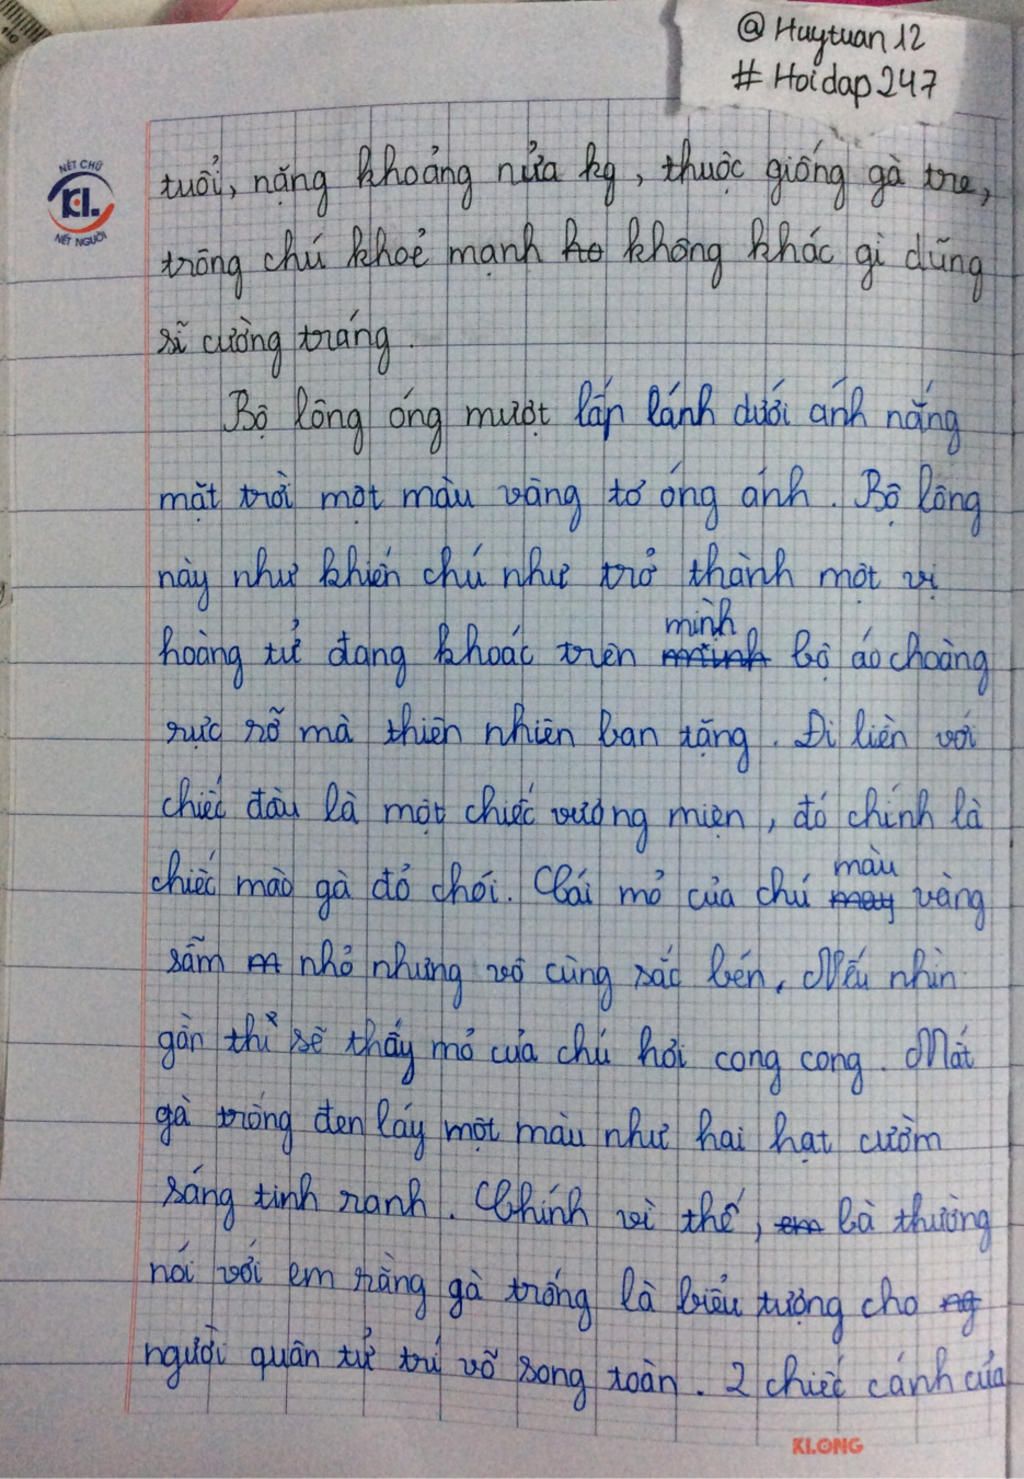 @Huytuan12
#Hoidap247
NÉT CHỮ
KL
NẾT NGƯỜI
tuổi, nặng khoảng nửa kg, thuộc giống gà tre,
trông chú khoẻ mạnh ko không khác gì dũng
sĩ cường tráng.
Bộ lông óng mượt lấp lánh dưới ánh nắng
mặt trời một màu vàng tơ óng ánh. Bộ lông
này như khiến chú như trở thành một vị
hoàng tử đang khoác trên mình bộ áo choàng
rực rỡ mà thiên nhiên ban tặng. Đi liền với
chiếc đầu là một chiếc vương miện, đó chính là
chiếc mào gà đỏ chói. Cái mỏ của chú màu vàng
sẫm nhỏ nhưng vô cùng sắc bén, Nếu nhìn
gần thì sẽ thấy mỏ của chú hơi cong cong. Mắt
gà trống đen láy một màu như hai hạt cườm
sáng tinh ranh. Chính vì thế, em bà thường
nói với em rằng gà trống là biểu tượng cho ng
người quân tử trí võ song toàn. 2 chiếc cánh của
KLONG